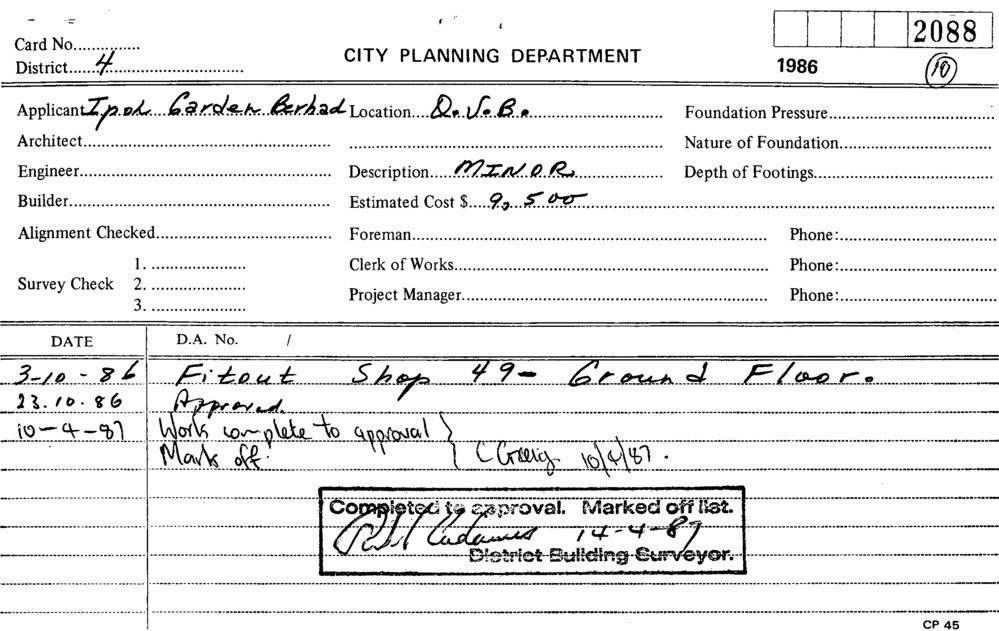 Card No...............
2088
District......4.................................
CITY PLANNING DEPARTMENT
1986
10
Applicant Ipoh Garden Berhad Location....Q.V.B.
Foundation Pressure
Architect
Nature of Foundation
Engineer
Description.....MINOR
Depth of Footings
Builder
Estimated Cost $....9,500
Alignment Checked
Foreman
Phone:
Survey Check
1.
2.
3.
Clerk of Works
Phone:
Project Manager
Phone:
DATE
D.A. No. /
3-10-86 Fitout Shop 49- Ground Floor.
23.10.86 Approved.
10-4-87 Work complete to approval
Mark off. C Greig 10/4/87.
Completed to approval. Marked off list.
14-4-87
District Building Surveyor.
CP 45